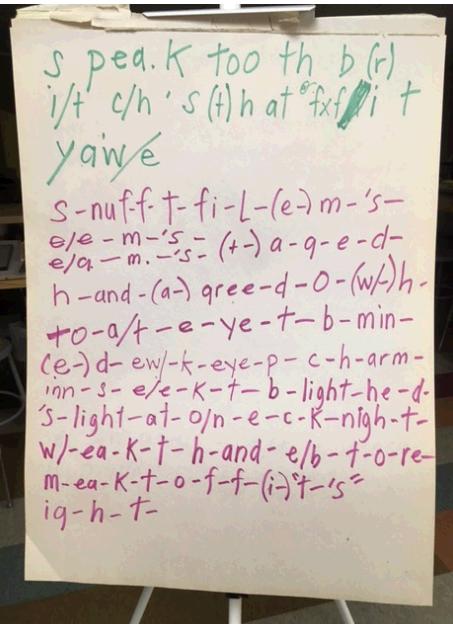 s pea.k too th b (r)
i/t c/h 's (t) h at fxf i t
yaw/e
s-nuf-f-t-fi-L-(e-) m-'s-
e/e-m-'s-
e/a-m.-'s- (t-) a-g-e-d-
h-and-(a-) gree-d-o-(w/-)h-
to-a/t-e-ye-t-b-min-
(e-) d-ew/-k-eye-p-c-h-arm-
inn-s-e/e-k-t-b-light-he-d-
's-light-at-o/n-e-c-k-nigh-t-
w/-ea-k-t-h-and-e/b-t-o-re-
m-ea-k-t-o-f-f-(i-)"t-'s"
ig-h-t-